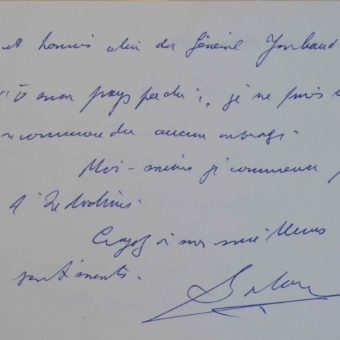 et hormis celui du Général Jouhaud
"Ô mon pays perdu", je ne puis
recommander aucun ouvrage.
Moi-même je commence
d'Indochine.
Croyez à mes meilleurs
sentiments.
Salan